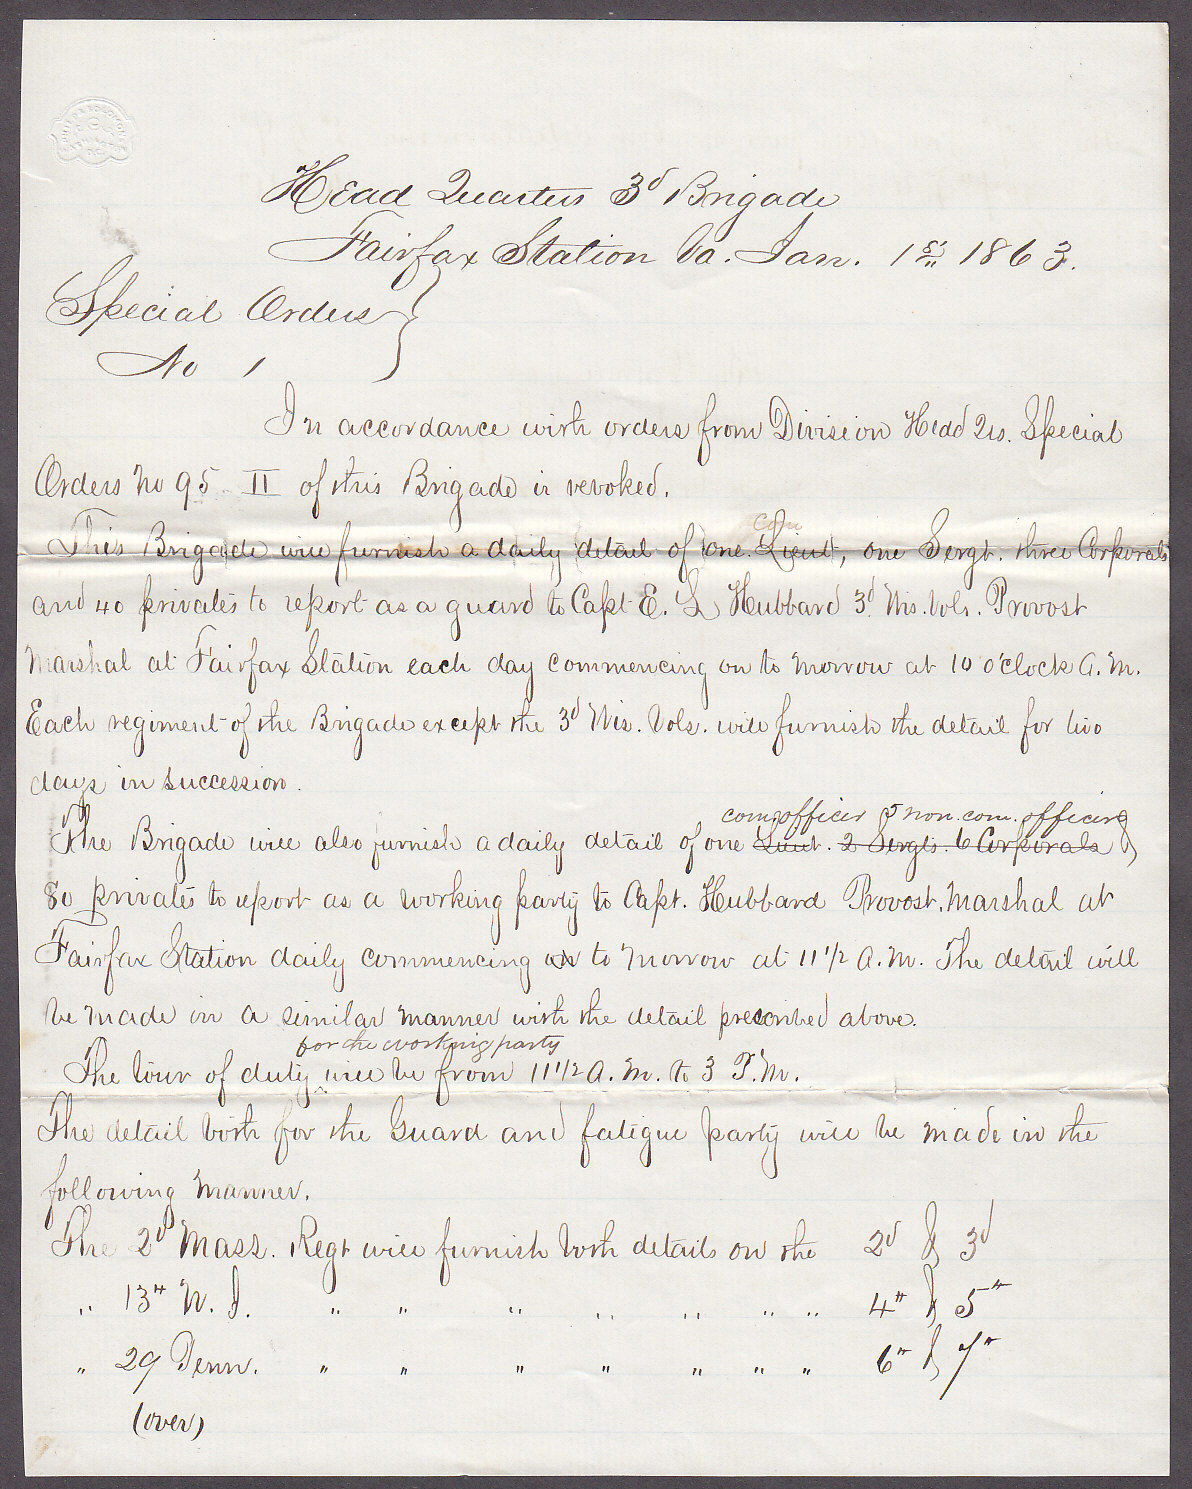 Head Quarters 3d Brigade
Fairfax Station Va. Jan. 1st 1863.
Special Orders
No 1
In accordance with orders from Division Head Qrs. Special
Orders No 95 II of this Brigade is revoked.
com
This Brigade will furnish a daily detail of one Lieut, one Sergt. three Corporals
and 40 privates to report as a guard to Capt E. L Hubbard 3d Wis. Vols. Provost
Marshal at Fairfax Station each day commencing on to morrow at 10 o'clock A.M.
Each regiment of the Brigade except the 3d Wis. Vols. will furnish the detail for two
days in succession.
com officer 5 non. com. officers
The Brigade will also furnish a daily detail of one Lieut. 2 Sergts. 6 Corporals &
80 privates to report as a working party to Capt. Hubbard Provost, Marshal at
Fairfax Station daily commencing on to morrow at 11 1/2 A.M. The detail will
be made in a similar manner with the detail prescribed above.
for the working party
The tour of duty will be from 11 1/2 A.M. to 3 P.M.
The detail both for the Guard and fatigue party will be made in the
following manner.
The 2d Mass. Regt will furnish both details on the 2d & 3d
" 13th N. J. " " " " " " " 4th & 5th
" 29 Penn. " " " " " " " 6th & 7th
(over)